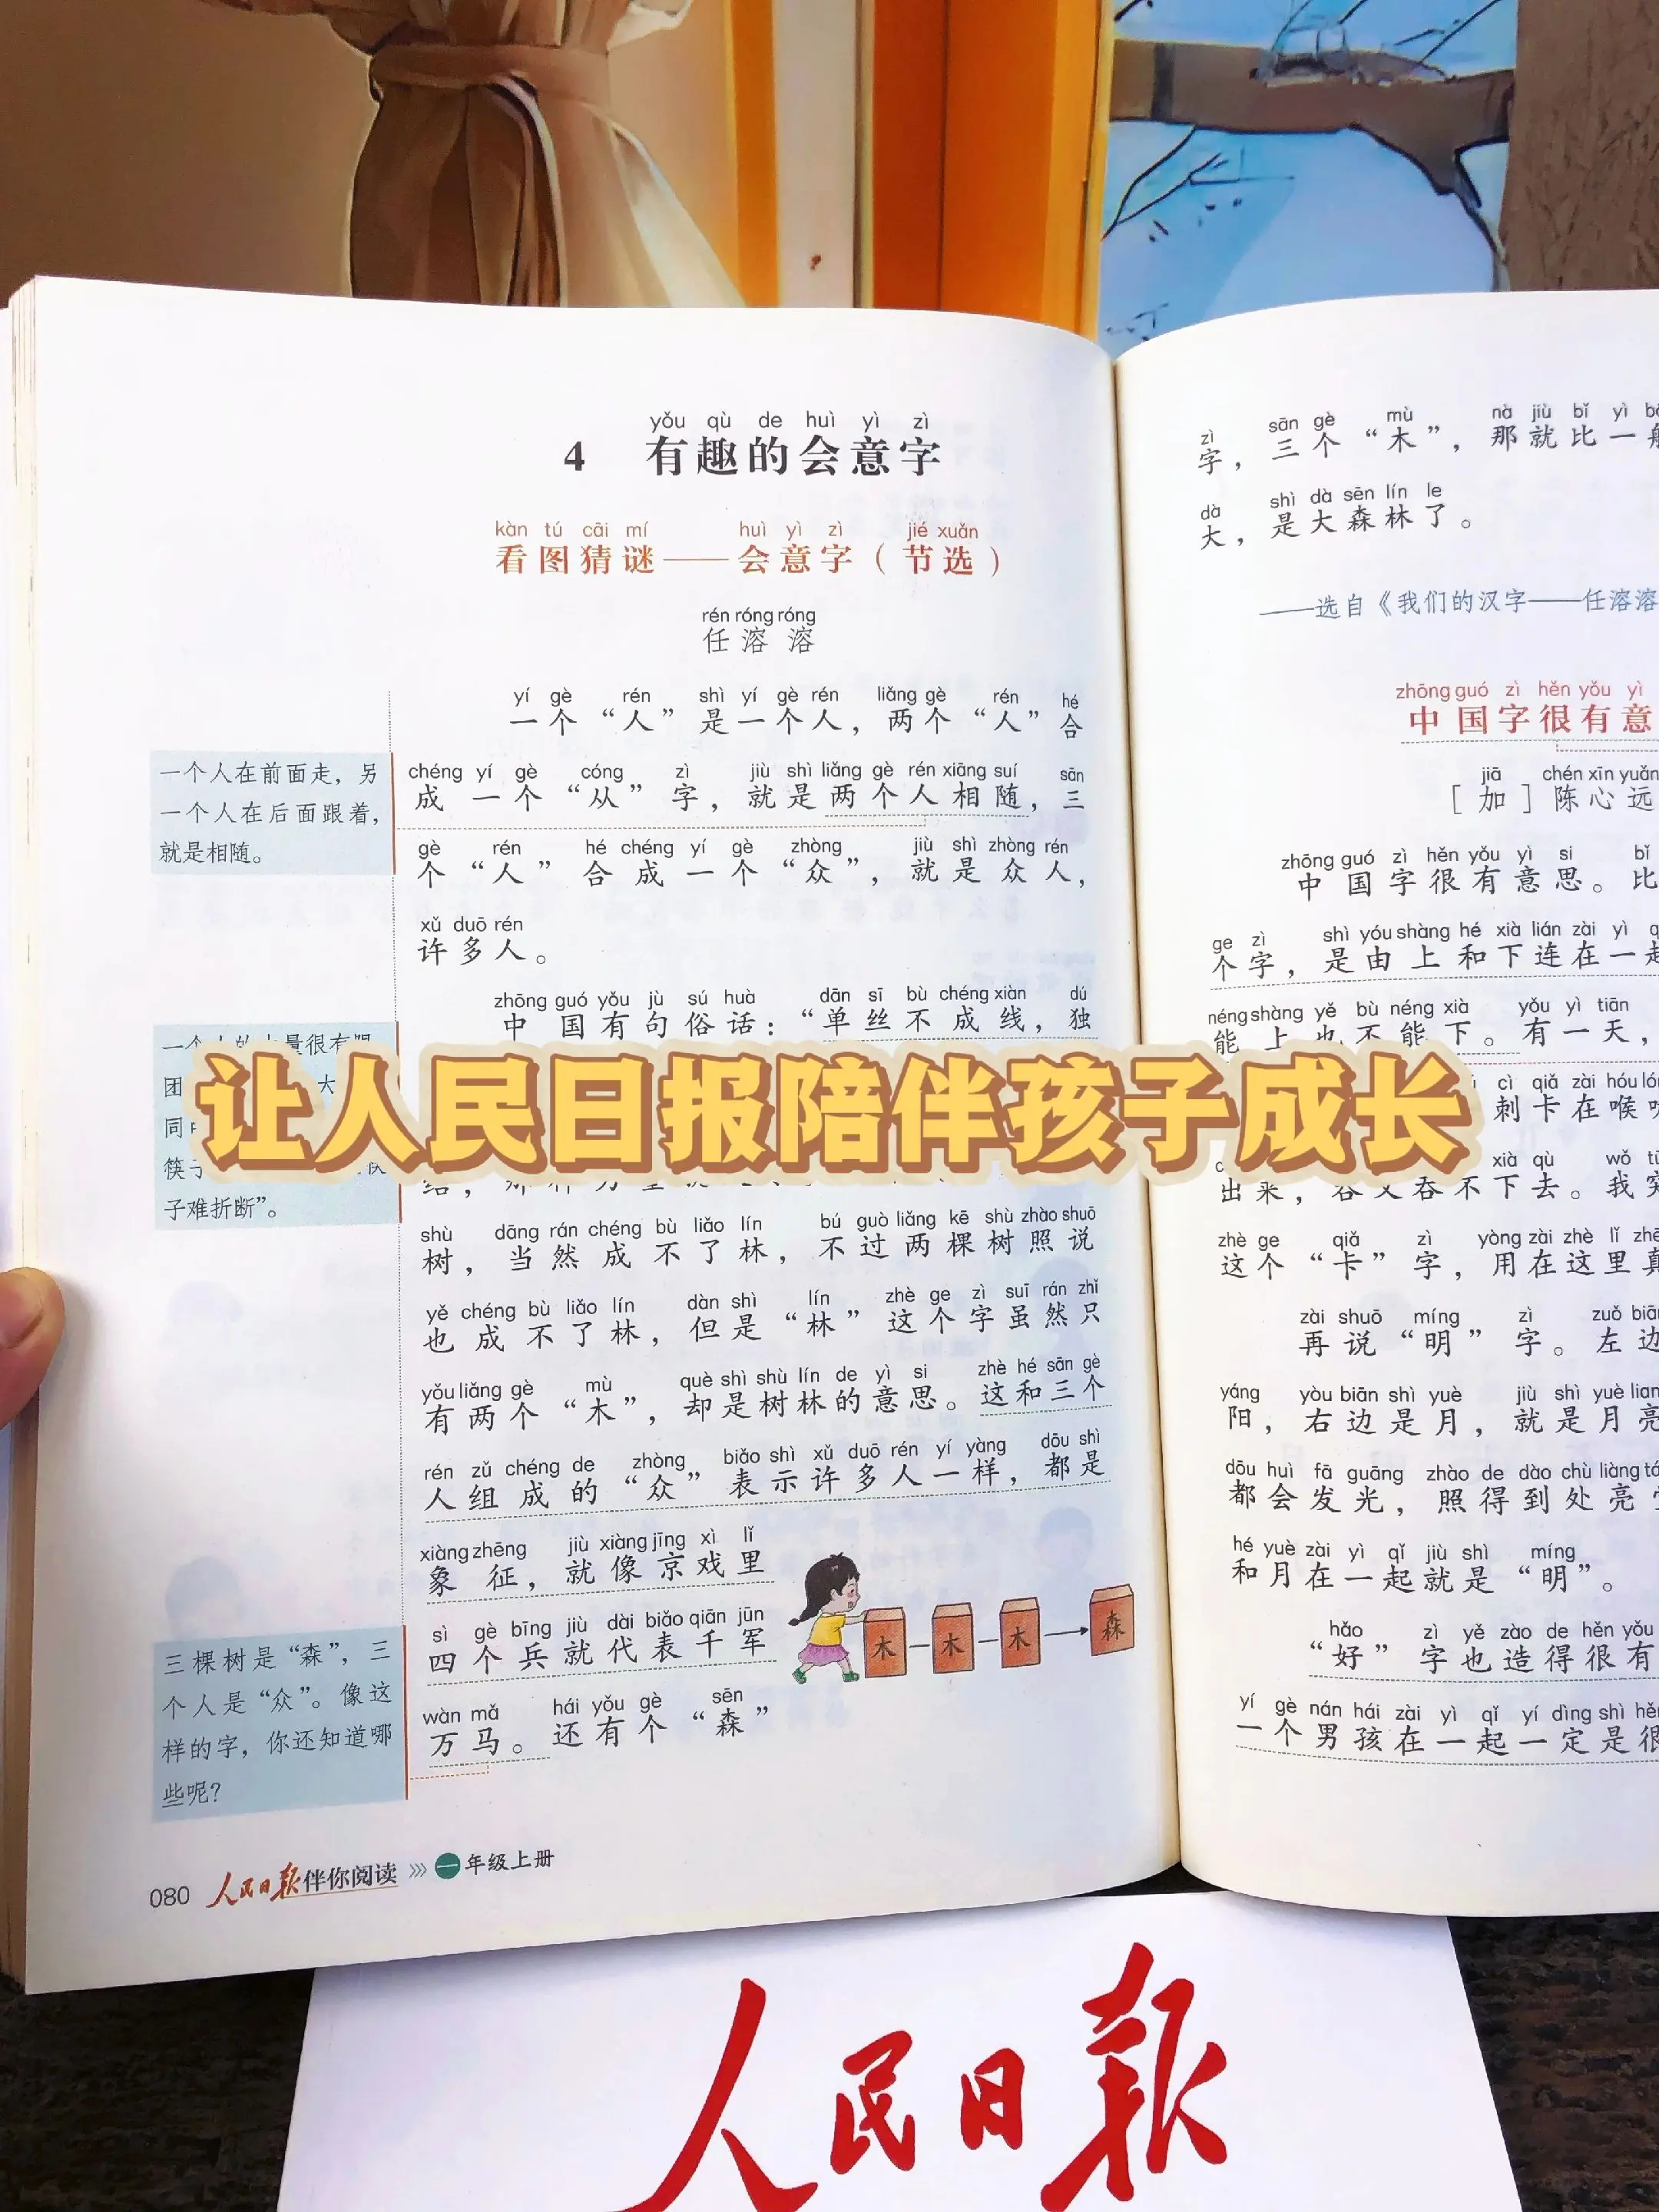 yǒu qù de huì yì zì
4 有趣的会意字
kàn tú cāi mí huì yì zì jié xuǎn
看图猜谜——会意字（节选）
rén róng róng
任溶溶
yí gè rén shì yí gè rén liǎng gè rén hé
一个“人”是一个人，两个“人”合
chéng yí gè cóng zì jiù shì liǎng gè rén xiāng suí sān
成一个“从”字，就是两个人相随，三
gè rén hé chéng yí gè zhòng jiù shì zhòng rén
个“人”合成一个“众”，就是众人，
xǔ duō rén
许多人。
zhōng guó yǒu jù sú huà dān sī bù chéng xiàn dú
中国有句俗话：“单丝不成线，独
shù dāng rán chéng bù liǎo lín bú guò liǎng kē shù zhào shuō
树，当然成不了林，不过两棵树照说
yě chéng bù liǎo lín dàn shì lín zhè ge zì suī rán zhǐ
也成不了林，但是“林”这个字虽然只
yǒu liǎng gè mù què shì shù lín de yì si zhè hé sān gè
有两个“木”，却是树林的意思。这和三个
rén zǔ chéng de zhòng biǎo shì xǔ duō rén yí yàng dōu shì
人组成的“众”表示许多人一样，都是
xiàng zhēng jiù xiàng jīng xì lǐ
象征，就像京戏里
sì gè bīng jiù dài biǎo qiān jūn
四个兵就代表千军
wàn mǎ hái yǒu gè sēn
万马。还有个“森”
木 木 木 森
一个人在前面走，另
一个人在后面跟着，
就是相随。
子难折断”。
三棵树是“森”，三
个人是“众”。像这
样的字，你还知道哪
些呢？
080 人民日报伴你阅读 一年级上册
让人民日报陪伴孩子成长
zì sān gè mù nà jiù bǐ yì
字，三个“木”，那就比一
dà shì dà sēn lín le
大，是大森林了。
——选自《我们的汉字——任溶溶
zhōng guó zì hěn yǒu yì
中国字很有意
jiā chén xīn yuǎn
［加］陈心远
zhōng guó zì hěn yǒu yì si bǐ
中国字很有意思。比
ge zì shì yóu shàng hé xià lián zài yì
个字，是由上和下连在一起
néng shàng yě bù néng xià yǒu yì tiān
能上也不能下。有一天，
cì qiǎ zài hóu
刺卡在喉
xià qù wǒ
出来，吞又吞不下去。我
zhè ge qiǎ zì yòng zài zhè lǐ
这个“卡”字，用在这里真
zài shuō míng zì zuǒ biān
再说“明”字。左边
yáng yòu biān shì yuè jiù shì yuè
阳，右边是月，就是月亮
dōu huì fā guāng zhào de dào chù liàng
都会发光，照得到处亮
hé yuè zài yì qǐ jiù shì míng
和月在一起就是“明”。
hǎo zì yě zào de hěn yǒu
“好”字也造得很有
yí gè nán hái zài yì qǐ yí dìng shì
一个男孩在一起一定是很
人民日报